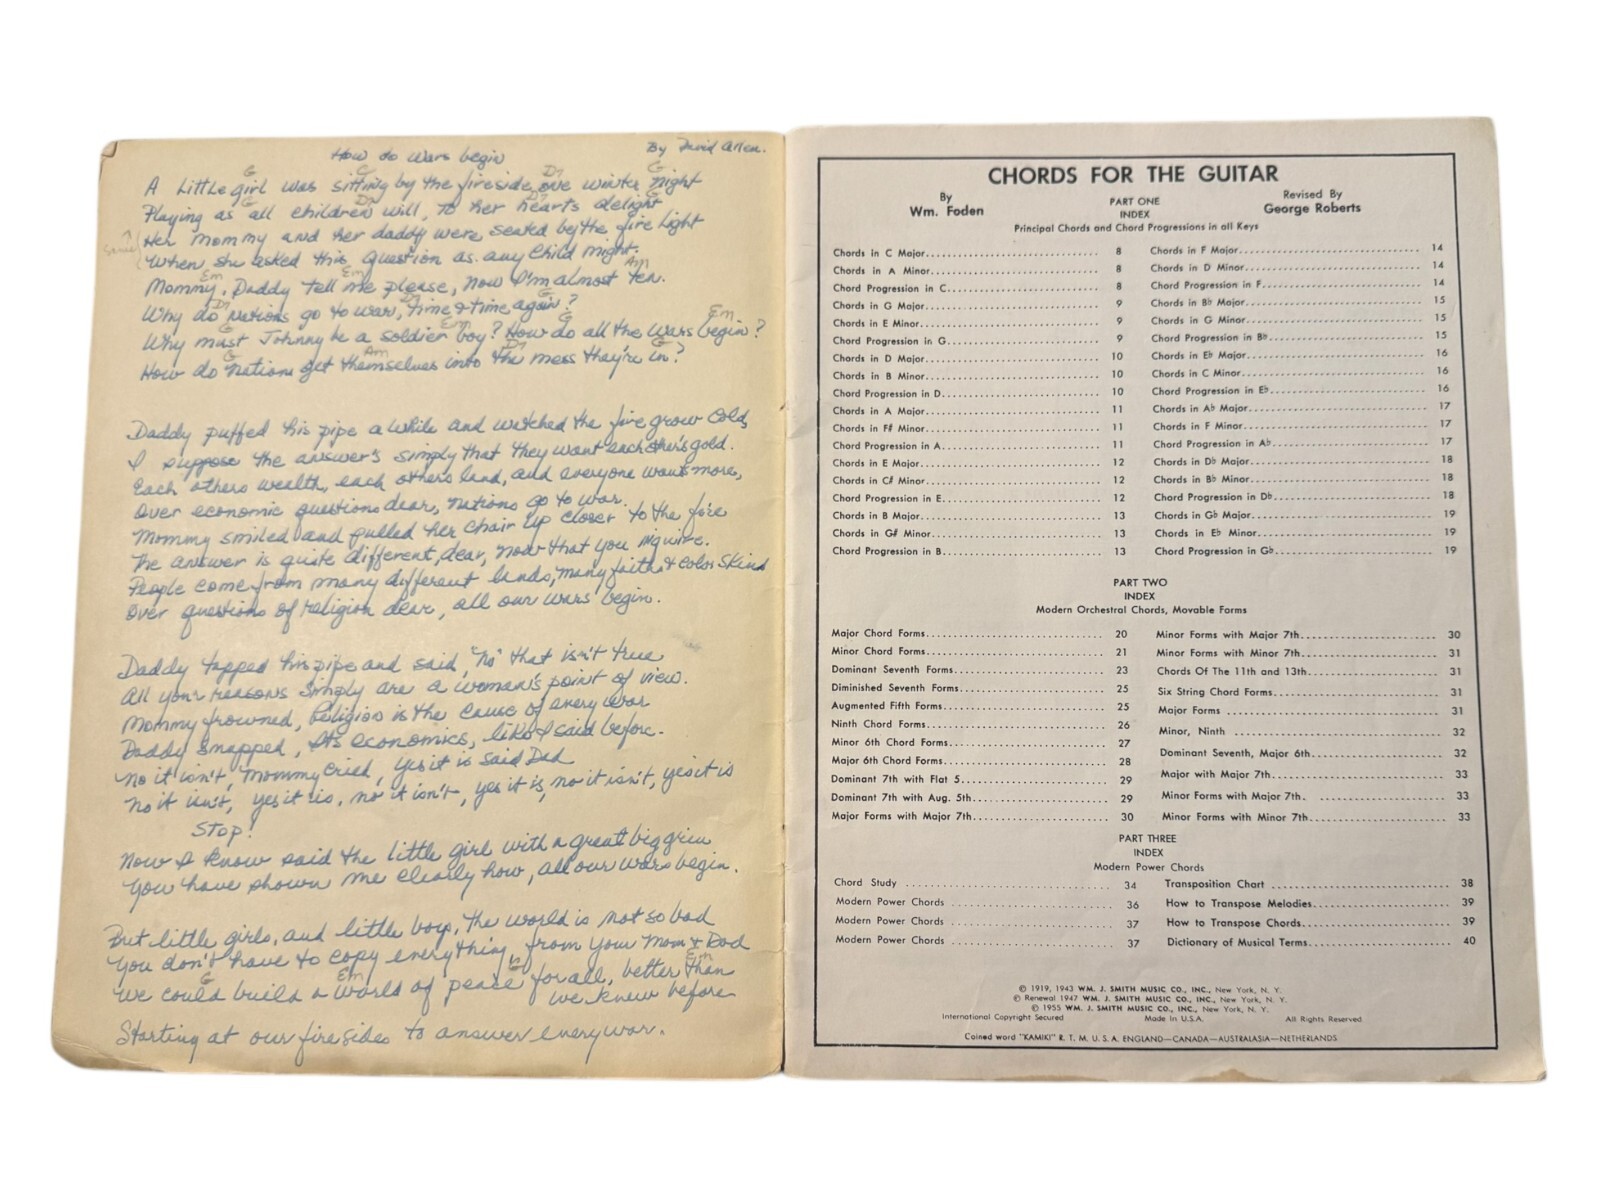 How do Wars begin
By David Arlen.
G G D7 G
A Little girl was sitting by the fireside, one winter night
G D7 D7 G
Playing as all children will, to her hearts delight
Same
Her Mommy and her daddy were seated by the fire light
When she asked this question as any child might.
Em Em Am
Mommy, Daddy tell me please, now I'm almost ten.
D7 D7 G
Why do Nations go to war, time & time again?
G Em G Em
Why must Johnny be a soldier boy? How do all the wars begin?
G Am D7 G
How do nations get themselves into the mess they're in?
Daddy puffed his pipe a while and watched the fire grow cold,
I suppose the answer's simply that they want each other's gold.
Each others wealth, each others land, and everyone wants more,
Over economic questions dear, nations go to war.
Mommy smiled and pulled her chair up closer to the fire
The answer is quite different, dear, now that you inquire.
People come from many different lands, many faith & color skins
Over questions of religion dear, all our wars begin.
Daddy tapped his pipe and said, "No" that isn't true
All your reasons simply are a woman's point of view.
Mommy frowned, Religion is the cause of every war
Daddy snapped, It's economics, like I said before.
No it isn't, Mommy cried, yes it is said Dad
No it isn't, yes it is, no it isn't, yes it is, no it isn't, yes it is
Stop!
Now I know said the little girl with a great big grin
You have shown me clearly how, all our wars begin.
But little girls, and little boys, the world is not so bad
You don't have to copy everything, from your Mom & Dad
G Em G Em
We could build a world of peace for all, better than
we knew before
Starting at our firesides to answer every war.
CHORDS FOR THE GUITAR
By
Wm. Foden
Revised By
George Roberts
PART ONE
INDEX
Principal Chords and Chord Progressions in all Keys
Chords in C Major 8
Chords in A Minor 8
Chord Progression in C 8
Chords in G Major 9
Chords in E Minor 9
Chord Progression in G 9
Chords in D Major 10
Chords in B Minor 10
Chord Progression in D 10
Chords in A Major 11
Chords in F# Minor 11
Chord Progression in A 11
Chords in E Major 12
Chords in C# Minor 12
Chord Progression in E 12
Chords in B Major 13
Chords in G# Minor 13
Chord Progression in B 13
Chords in F Major 14
Chords in D Minor 14
Chord Progression in F 14
Chords in B♭ Major 15
Chords in G Minor 15
Chord Progression in B♭ 15
Chords in E♭ Major 16
Chords in C Minor 16
Chord Progression in E♭ 16
Chords in A♭ Major 17
Chords in F Minor 17
Chord Progression in A♭ 17
Chords in D♭ Major 18
Chords in B♭ Minor 18
Chord Progression in D♭ 18
Chords in G♭ Major 19
Chords in E♭ Minor 19
Chord Progression in G♭ 19
PART TWO
INDEX
Modern Orchestral Chords, Movable Forms
Major Chord Forms 20
Minor Chord Forms 21
Dominant Seventh Forms 23
Diminished Seventh Forms 25
Augmented Fifth Forms 25
Ninth Chord Forms 26
Minor 6th Chord Forms 27
Major 6th Chord Forms 28
Dominant 7th with Flat 5 29
Dominant 7th with Aug. 5th 29
Major Forms with Major 7th 30
Minor Forms with Major 7th 30
Minor Forms with Minor 7th 31
Chords Of The 11th and 13th 31
Six String Chord Forms 31
Major Forms 31
Minor, Ninth 32
Dominant Seventh, Major 6th 32
Major with Major 7th 33
Minor Forms with Major 7th 33
Minor Forms with Minor 7th 33
PART THREE
INDEX
Modern Power Chords
Chord Study 34
Modern Power Chords 36
Modern Power Chords 37
Modern Power Chords 37
Transposition Chart 38
How to Transpose Melodies 39
How to Transpose Chords 39
Dictionary of Musical Terms 40
© 1919, 1943 WM. J. SMITH MUSIC CO., INC., New York, N. Y.
© Renewal 1947 WM. J. SMITH MUSIC CO., INC., New York, N. Y.
© 1955 WM. J. SMITH MUSIC CO., INC., New York, N. Y.
International Copyright Secured Made in U.S.A. All Rights Reserved
Coined word "KAMIKI" R. T. M. U. S. A. ENGLAND—CANADA—AUSTRALASIA—NETHERLANDS